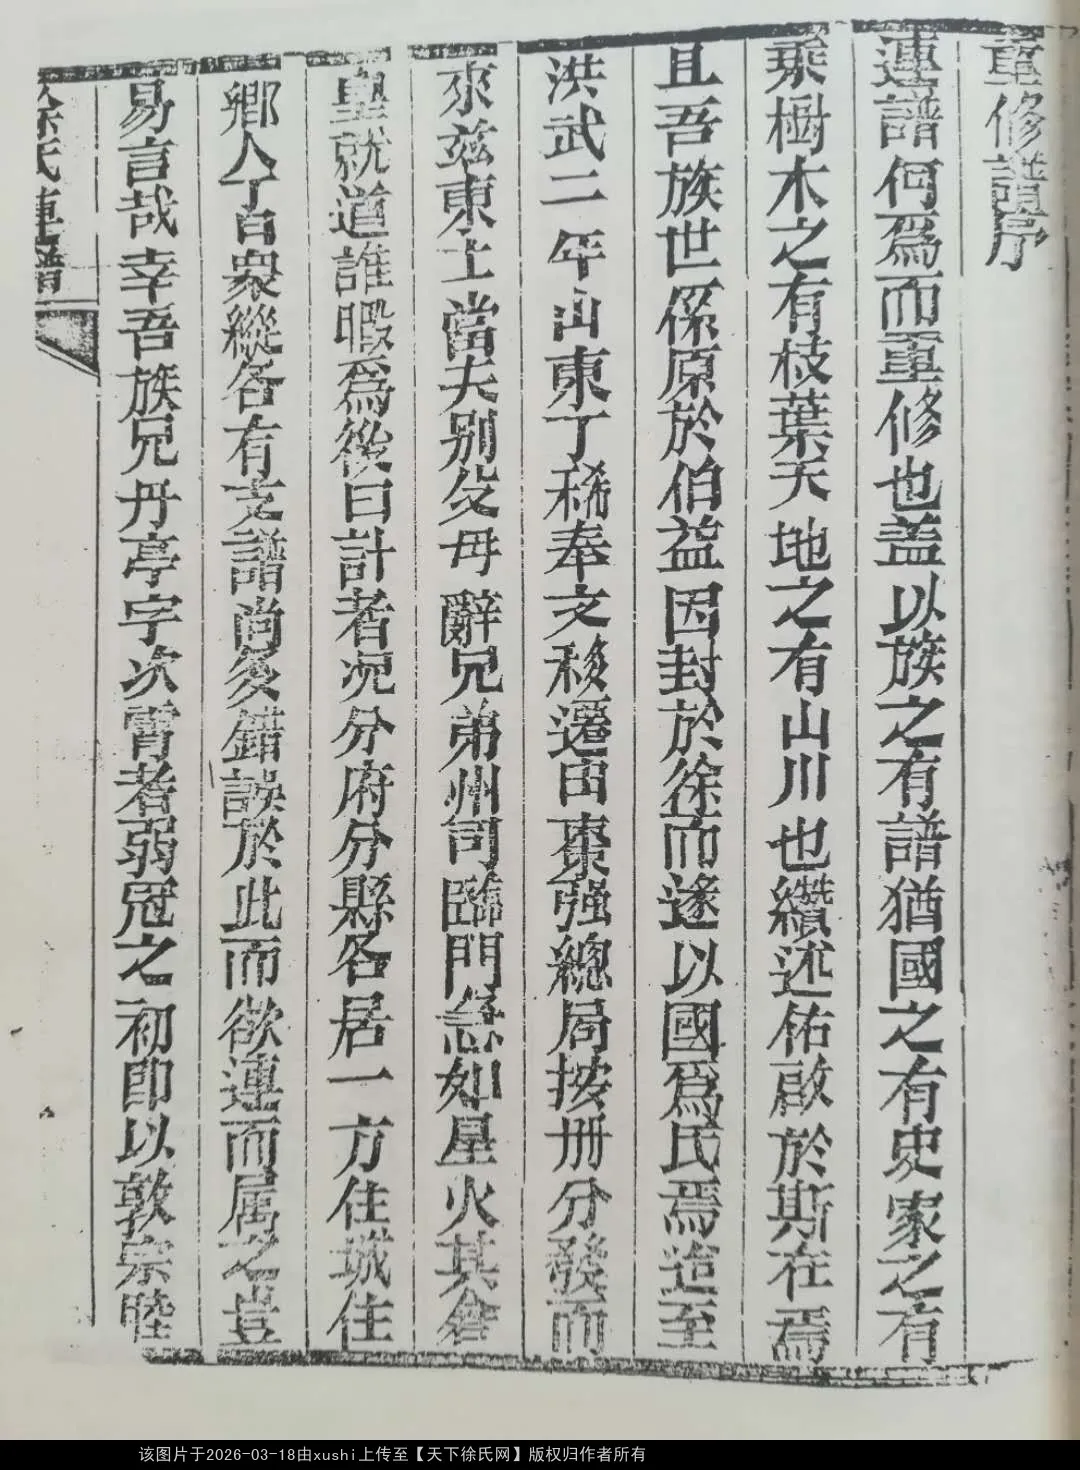 重修譜序
連譜何爲而重修也盖以族之有譜猶國之有史家之有
乗樹木之有枝葉天地之有山川也纘述佑啟於斯在焉
且吾族世係原於伯益因封於徐而遂以國爲氏焉迨至
洪武二年山東丁稀奉文移遷由棗强總局按册分發而
來兹東土當夫别父母辭兄弟州司臨門急如星火其倉
皇就道誰暇爲後日計者况分府分縣各居一方住城住
鄉人丁白衆縱各有支譜尚多錯誤於此而欲連而属之豈
易言哉幸吾族兄丹亭字次霄者弱冠之初即以敦宗睦
徐氏連譜
该图片于2026-03-18由xushi上传至【天下徐氏网】版权归作者所有